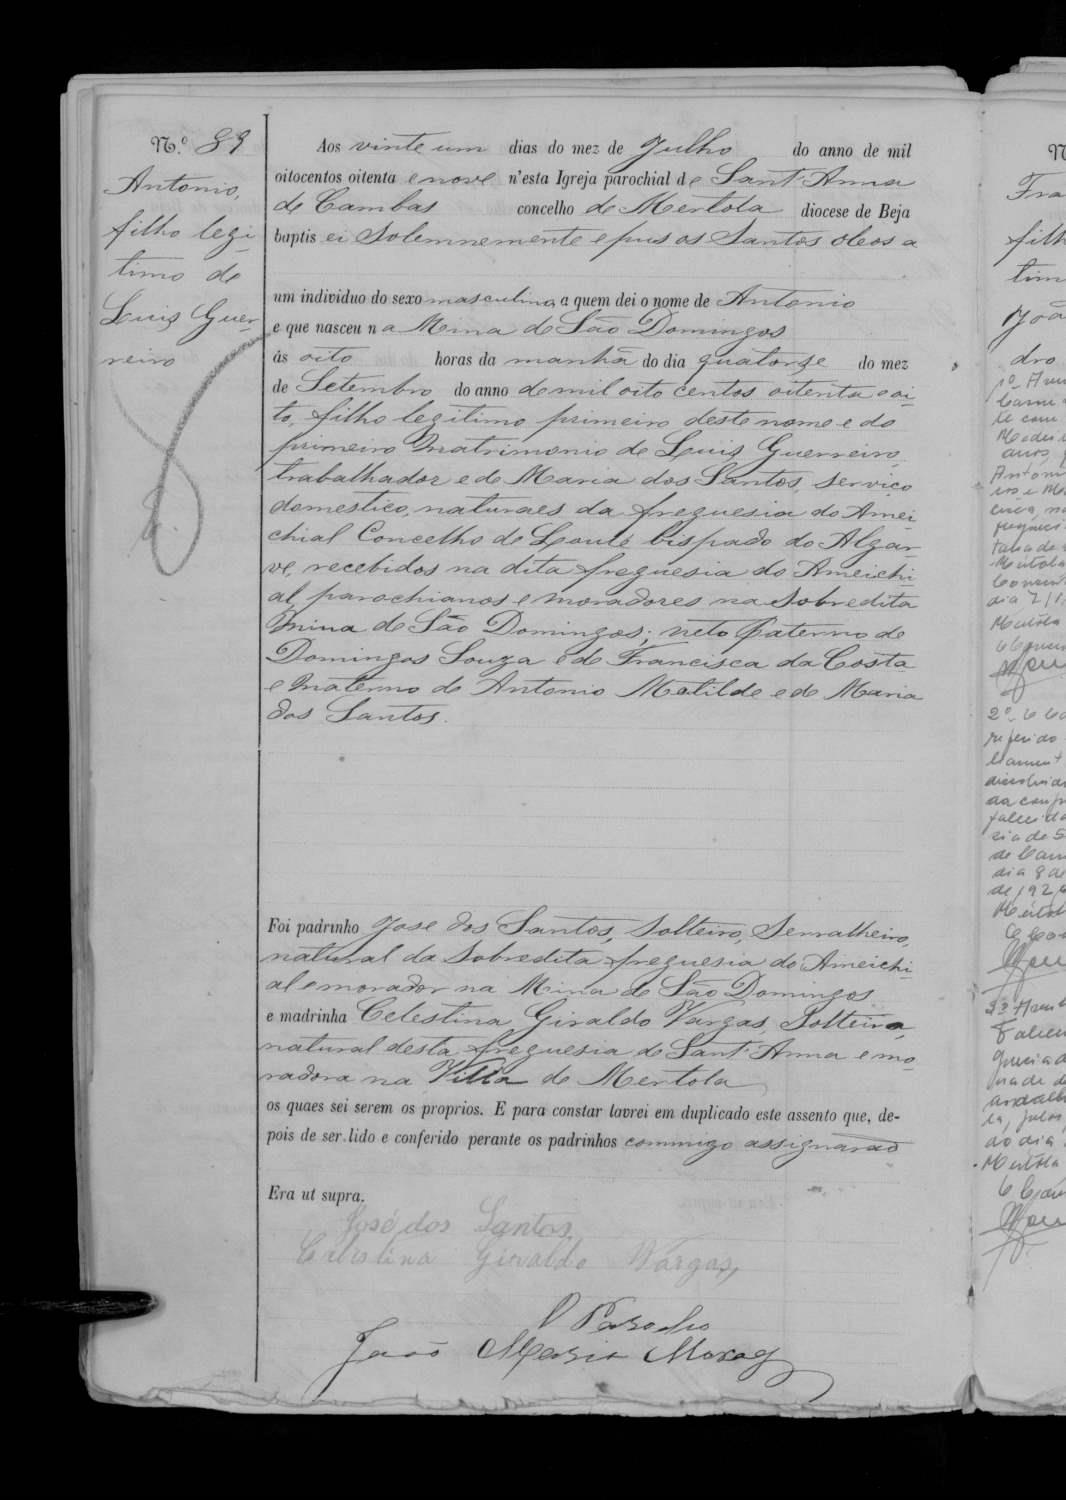 N.º 89
Antonio,
filho legi-
timo de
Luis Guer-
reiro
Aos vinte um dias do mez de Julho do anno de mil
oitocentos oitenta e nove n'esta Igreja parochial de Sant'Anna
de Cambas concelho de Mertola diocese de Beja
baptisei Solemnemente e pus os Santos oleos a
um individuo do sexo masculino a quem dei o nome de Antonio
e que nasceu na Mina de São Domingos
ás oito horas da manhã do dia quatorze do mez
de Setembro do anno de mil oito centos oitenta e oi-
to, filho legitimo primeiro deste nome e do
primeiro Matrimonio de Luis Guerreiro,
trabalhador e de Maria dos Santos, serviço
domestico, naturaes da freguesia do Amei-
chial Concelho de Loulé bispado do Algar-
ve, recebidos na dita freguesia do Ameichi-
al parochianos e moradores na Sobredita
Mina de São Domingos; neto Paterno de
Domingos Souza e de Francisca da Costa
e Materno de Antonio Matilde e de Maria
dos Santos.
Foi padrinho Jose dos Santos, Solteiro, Serralheiro,
natural da Sobredita freguesia do Ameichi-
al e morador na Mina de São Domingos
e madrinha Celestina Giraldo Vargas, Solteira,
natural desta freguesia de Sant'Anna e mo-
radora na Villa de Mertola
os quaes sei serem os proprios. E para constar lavrei em duplicado este assento que, de-
pois de ser lido e conferido perante os padrinhos commigo assignarão
Era ut supra.
José dos Santos
Celestina Giraldo Vargas,
O Parocho
João Maria Moraes
N
Fra
filh
tim
Joã
dro